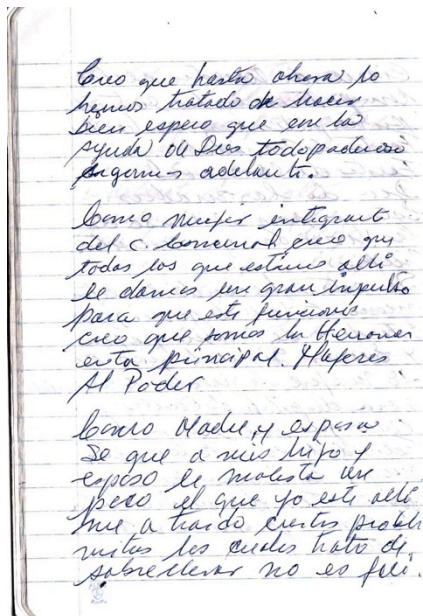 Creo que hasta ahora lo
hemos tratado de hacer
bien espero que con la
ayuda de Dios todopoderoso
sigamos adelante.
Como mujer integrant
del c. Comunal creo que
todas las que estamos alli
le damos un gran impulso
para que este funcione
creo que somos la Herrami
enta principal. Mujeres
Al Poder
Como Madre y esposa
Se que a mis hijo y
esposo le molesta un
poco el que yo este alli
me a traido ciertos probl
mitas los cuales trato de
sobrellevar no es facil.